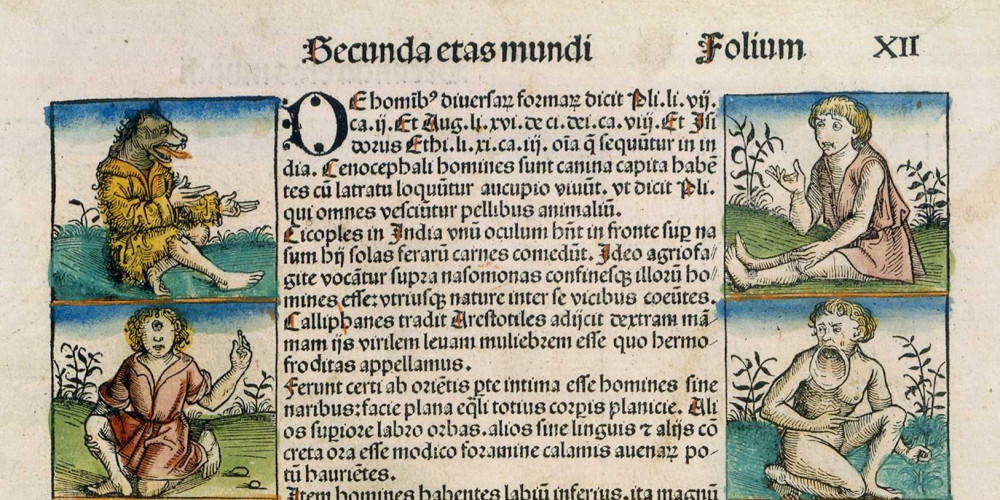 Secunda etas mundi Folium XII
DE homīb⁹ diuersaꝝ formaꝝ dicit Pli. li. vij.
ca. ij. Et Aug. li. xvi. de ci. dei. ca. viij. Et Isi
dorus Ethi. li. xi. ca. iij. oīa q̄ sequūtur in in
dia. Cenocephali homines sunt canina capita habē
tes cū latratu loquūtur aucupio viuūt. vt dicit Pli.
qui omnes vescūtur pellibus animaliū.
Cicoples in India vnū oculum hn̄t in fronte sup na
sum hij solas feraru carnes comedūt. Ideo agriofa⸗
gite vocātur supra nasomonas confinesqꝫ illorū ho⸗
mines esse: vtriusqꝫ nature inter se vicibus coeūtes.
Calliphanes tradit Arestotiles adijcit dextram mā⸗
mam ijs virilem leuam muliebrem esse quo hermo⸗
froditas appellamus.
Ferunt certi ab oriētis pte intima esse homines sine
naribus: facie plana eq̄li totius corpis planicie. Ali
os supiore labro orbas. alios sine linguis ⁊ alijs cō
creta ora esse modico foramine calamis auenaꝝ po⸗
tū hauriētes.
Item homines habentes labiū inferius. ita magnū